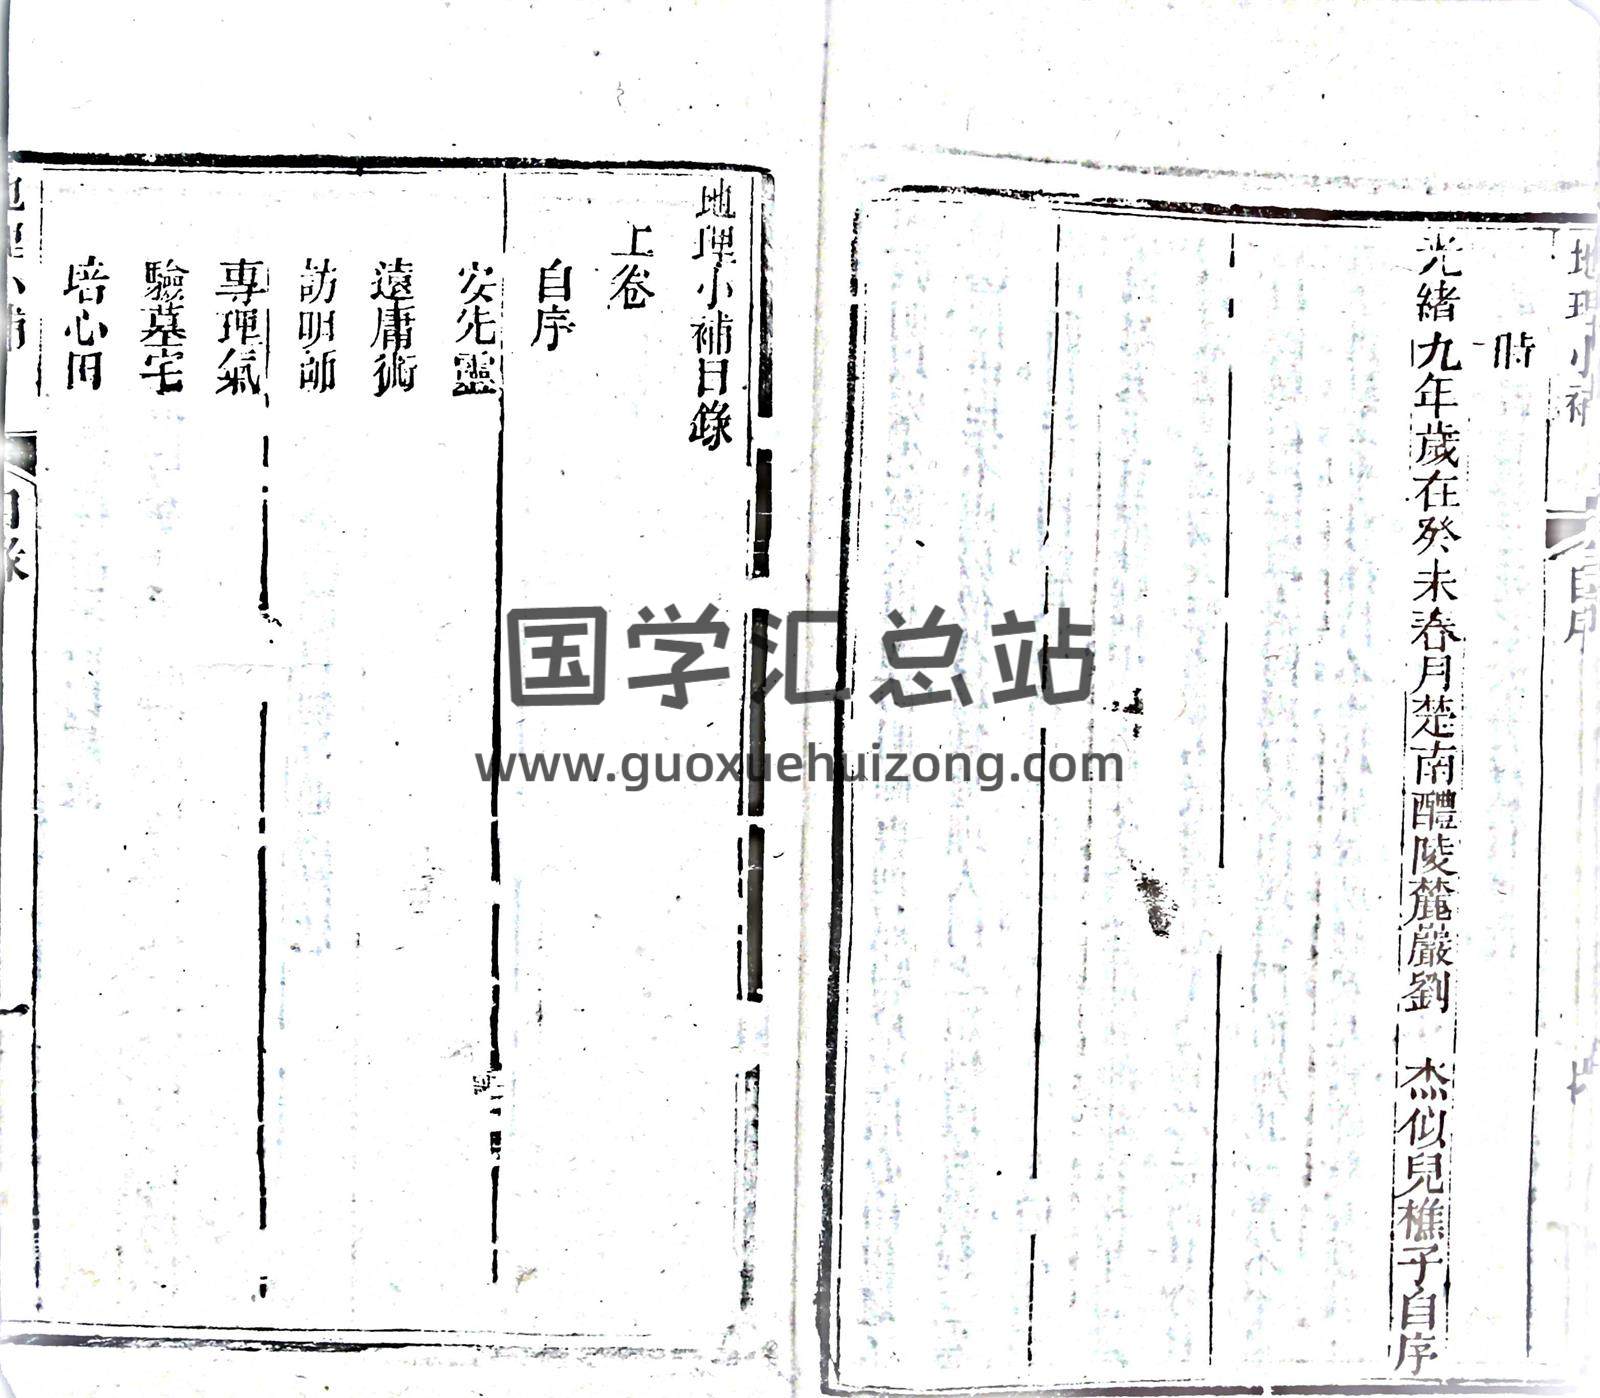 地理小補
自序
時
光緒九年歲在癸未春月楚南醴陵麓巖劉 杰似兒樵子自序
地理小補目錄
上卷
自序
安先靈
遠庸術
訪明師
專理氣
驗墓宅
培心田
地理小補
目錄
一
国学汇总站
www.guoxuehuizong.com